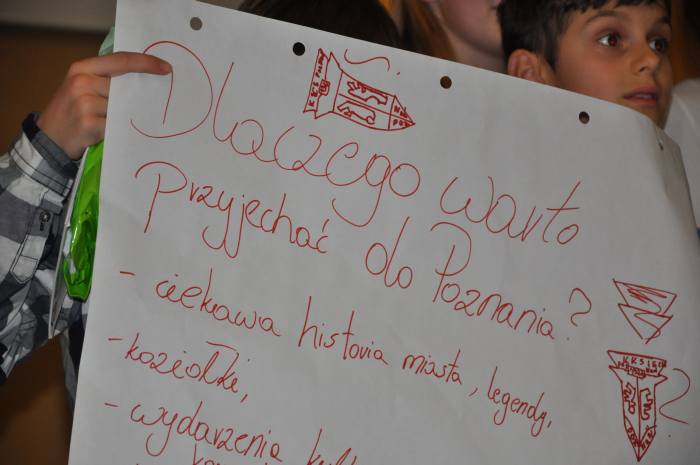 Dlaczego warto
Przyjechać do Poznania?
- ciekawa historia miasta, legendy,
- koziołki,
- wydarzenia